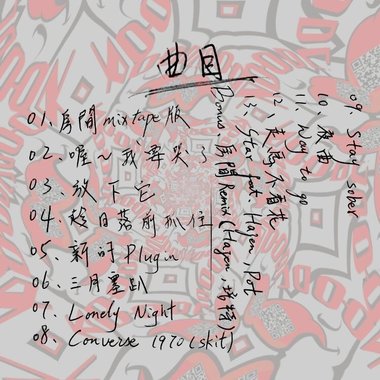 曲目
01、房間 mixtape版
02、喔~我要哭了
03、放下它
04、於日落前抓住
05、新的 Plugin
06、三月墨趴
07、Lonely Night
08、Converse 1970 (skit)
09、Stay sober
10、散曲
11、Way to go
12、走馬不看花
13、Star feat. Hajen, Dot
Bonus 房間 Remix (Hajen, 瑞特)